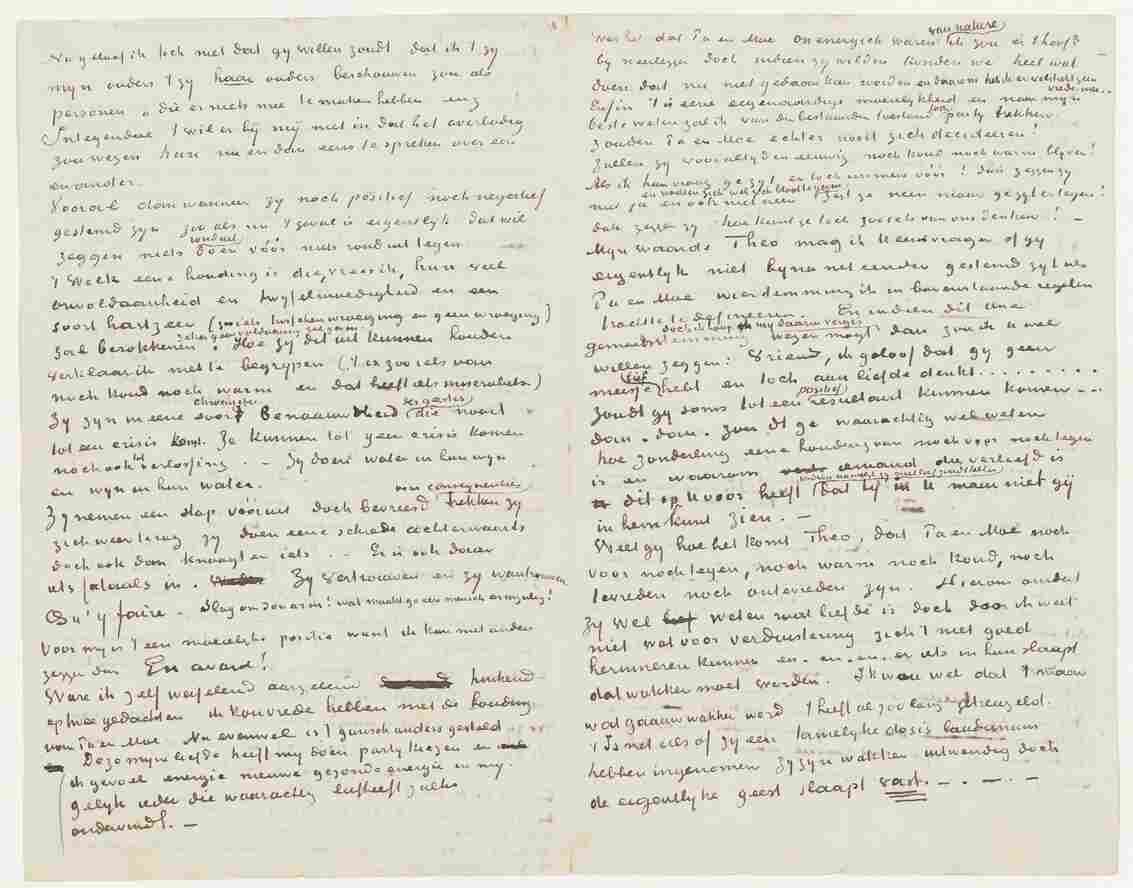 Nu geloof ik toch niet dat gy willen zoudt dat ik 't zy
myn ouders 't zy haar ouders beschouwen zou als
personen „die er niets mee te maken hebben enz
Integendeel 't wil er bij mij niet in dat het overbodig
zou wezen hun nu en dan eens te spreken over een
en ander.
Vooral dan wanneer zy noch positief noch negatief
gestemd zyn zoo als nu 't geval is eigentlyk dat wil
zeggen niets ronduit voor vóór niets ronduit tegen
't Welk eene houding is die, vrees ik, hun veel
onvoldaanheid en twyfelmoedigheid en een
soort hartzeer (zooiets tusschen wroeging en geen wroeging)
zal berokkenen. Hoe zy dit uit kunnen houden
verklaar ik niet te begrypen ('t is zoo iets van
noch koud noch warm en dat heeft iets miserabels)
Zy zyn in eene soort benaauwdheid die nooit
tot een crisis komt. Ze kunnen tot geen crisis komen
noch ook tot verlossing. – Zy doen water in hun wyn
en wyn in hun water.
Zy nemen een stap vóóruit doch bevreesd voor consequenties trekken zy
zich weer terug zy doen eene schrede achterwaarts
doch ook dan knaagt er iets. – Er is ook daar
iets fataals in. Zy vertrouwen en zy wantrouwen
Qu'y faire – slag om den arm! wat maakt ge een mensch armzalig!
Voor my is 't een moeielyke positie want ik kan niet anders
zeggen dan En avant!
Ware ik zelf weifelend aarzelend hinkend
op twee gedachten ik kon vrede hebben met de houding
van Pa en Moe. Nu evenwel is 't gansch anders gesteld
Deze myn liefde heeft my doen party kiezen en
ik gevoel energie nieuwe gezonde energie in my.
gelyk ieder die waarachtig liefheeft zulks
ondervindt. –
Was het dat Pa en Moe onenergisch waren van nature ik zou er 't hoofd
by neerleggen doch indien zy wilden konden we heel wat
doen dat nu niet gedaan kan worden en daarom heb ik er volstrekt geen vrede mee..
Enfin 't is eene eigenaardige moeielykheid en naar myn
beste weten zal ik van den bestaanden toestand party trekken
zouden Pa en Moe echter nooit zich decideeren!
Zullen zy voor altyd en eeuwig noch koud noch warm blyven!
Als ik hun vraag ge zyt er toch immers vóór! dan zeggen zy
niet ja en ook niet neen
dan zeggen zy hoe kunt ge toch zoo iets van ons denken! –
Myn waarde Theo mag ik U eens vragen of gy
eigentlyk niet byna net eender gestemd zyt als
Pa en Moe wier stemming ik in bovenstaande regelen
trachtte te definieeren. En indien dit Uwe
gemoedsstemming wezen mogt doch ik loop op my daarin vergis dan zou ik U wel
willen zeggen: Vriend, ik geloof dat gy geen
meisje lief hebt en toch aan liefde denkt.........
Zoudt gy soms tot een positief resultaat kunnen komen ---
dan. dan. zoudt ge waarachtig wel weten
hoe zonderling eene houding van noch voor noch tegen
is en waarom iemand die verliefd is
dit op U voor heeft
in hem kunt zien. –
Weet gy hoe het komt Theo, dat Pa en Moe noch
voor noch tegen, noch warm noch koud, noch
tevreden noch ontevreden zyn. Hierom omdat
Zy wel weten wat liefde is doch door ik weet
niet wat voor verduistering zich 't niet goed
herinneren kunnen en. en. en. er iets in hun slaapt
dat wakker moet worden. Ik wou wel dat 't maar
wat gaauw wakker werd 't heeft al zoo lang getreuzeld.
't Is net iets of zy een tamelyke dosis laudanum
hebben ingenomen zy zyn wakker uitwendig doch
de eigentlyke geest slaapt vast. – . – . –